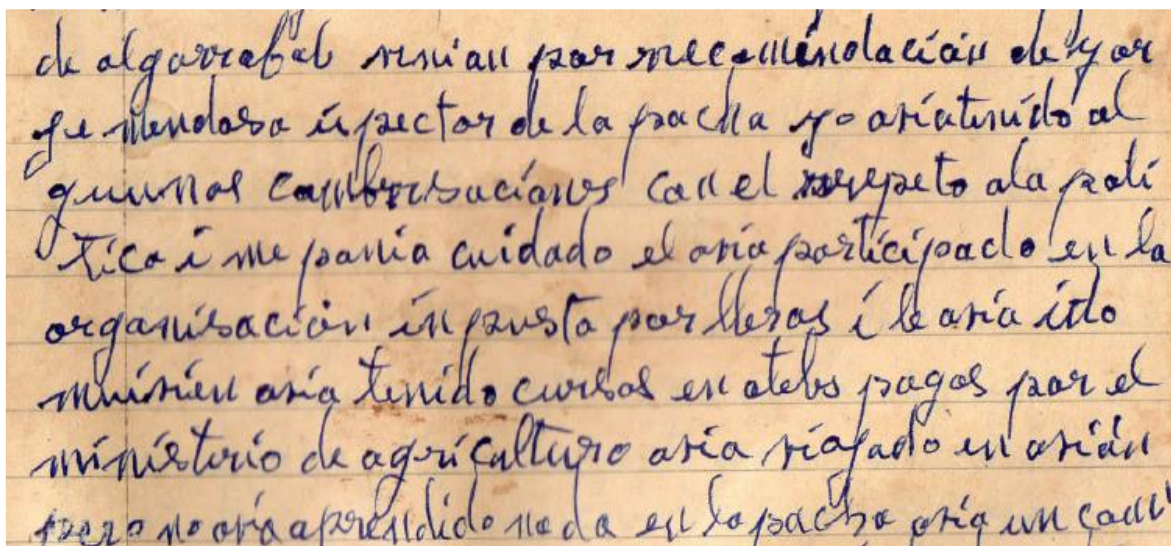 de algarrabal vinian por recomendación de yor
ge mendosa ispector de la pacha yo aviatenido al
gunnas combersaciones con el respeto ala poli
tica i me ponia cuidado el avia participado en la
organisación inpusta por lleras i le avia ido
muivien avia tenido cursos en otebs pagos por el
ministerio de agriculturo avia viajado en avián
pero no avia aprendido nada en la pacha avia un cam